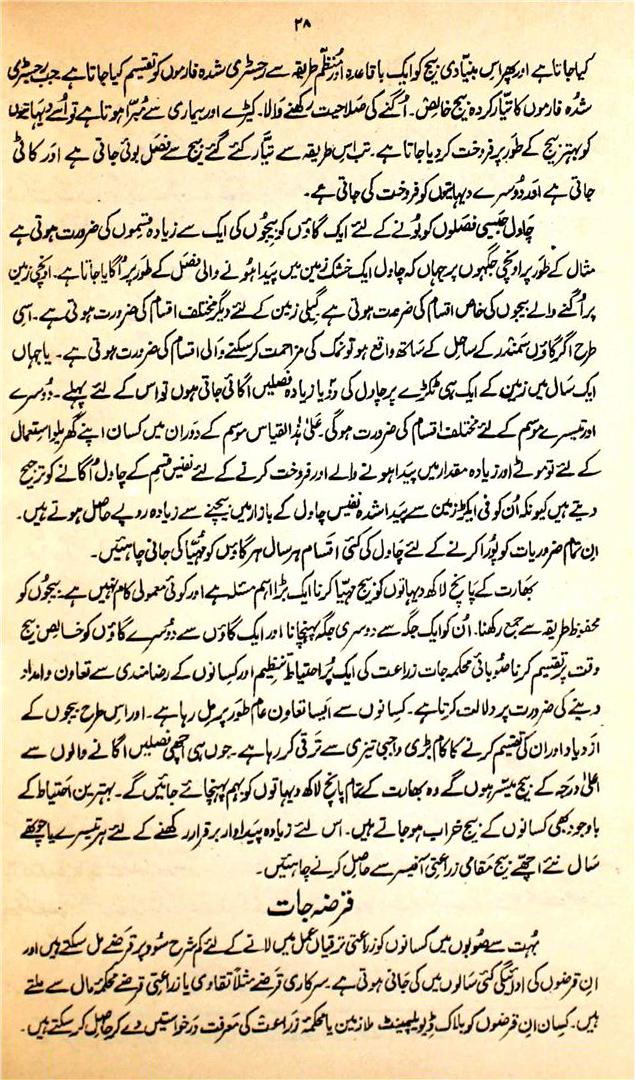 ۲۸
کیا جاتا ہے اور پھر اس بنیادی بیج کو ایک باقاعدہ اور منظم طریقہ سے رجسٹری شدہ فارموں کو تقسیم کیا جاتا ہے جب رجسٹری
شدہ فارموں کا تیار کردہ بیج خالص۔ اُگنے کی صلاحیت رکھنے والا۔ کیڑے اور بیماری سے مبرّا ہوتا ہے تو اُسے دیہاتیوں
کو بہتر بیج کے طور پر فروخت کر دیا جاتا ہے۔ تب اس طریقہ سے تیّار کئے گئے بیج سے فصل بوئی جاتی ہے اور کاٹی
جاتی ہے اور دُوسرے دیہاتیوں کو فروخت کی جاتی ہے۔
چاول جیسی فصلوں کو بونے کے لئے ایک گاؤں کو بیجوں کی ایک سے زیادہ قسموں کی ضرورت ہوتی ہے
مثال کے طور پر اونچی جگہوں پر جہاں کہ چاول ایک خشک زمین میں پیدا ہونے والی فصل کے طور پر اُگایا جاتا ہے۔ اونچی زمین
پر اُگنے والے بیجوں کی خاص اقسام کی ضرورت ہوتی ہے گیلی زمین کے لئے دیگر مختلف اقسام کی ضرورت ہوتی ہے۔ اسی
طرح اگر گاؤں سمندر کے ساحل کے ساتھ واقع ہو تو نمک کی مزاحمت کر سکنے والی اقسام کی ضرورت ہوتی ہے۔ یا جہاں
ایک سال میں زمین کے ایک ہی ٹکڑے پر چاول کی دو یا زیادہ فصلیں اُگائی جاتی ہوں تو اس کے لئے پہلے۔ دُوسرے
اور تیسرے موسم کے لئے مختلف اقسام کی ضرورت ہوگی۔ علیٰ ہٰذا القیاس موسم کے دَوران میں کسان اپنے گھریلو استعمال
کے لئے تو موٹے اور زیادہ مقدار میں پیدا ہونے والے اور فروخت کرنے کے لئے نفیس قسم کے چاول اُگانے کو ترجیح
دیتے ہیں کیونکہ اُن کو فی ایکڑ زمین سے پیدا شدہ نفیس چاول کے بازار میں بیچنے سے زیادہ روپے حاصل ہوتے ہیں۔
اِن تمام ضروریات کو پُورا کرنے کے لئے چاول کی کئی اقسام ہر سال ہر گاؤں کو مُہیّا کی جانی چاہئیں۔
بھارت کے پانچ لاکھ دیہاتوں کو بیج مہیّا کرنا ایک بڑا اہم مسئلہ ہے اور کوئی معمولی کام نہیں ہے۔ بیجوں کو
محفوظ طریقہ سے جمع رکھنا۔ اُن کو ایک جگہ سے دوسری جگہ پہنچانا اور ایک گاؤں سے دُوسرے گاؤں کو خالص بیج
وقت پر تقسیم کرنا صُوبائی محکمہ جات زراعت کی ایک پُر احتیاط تنظیم اور کسانوں کے رضامندی سے تعاون و امداد
دینے کی ضرورت پر دلالت کرتا ہے۔ کسانوں سے ایسا تعاون عام طور پر مل رہا ہے۔ اور اس طرح بیجوں کے
ازدیاد اور ان کی تقسیم کرنے کا کام بڑی واجبی تیزی سے ترقی کر رہا ہے۔ جوں ہی اچھی فصلیں اگانے والوں سے
اعلیٰ درجہ کے بیج میسّر ہوں گے وہ بھارت کے تمام پانچ لاکھ دیہاتوں کو بہم پہنچائے جائیں گے۔ بہترین احتیاط کے
باوجود بھی کسانوں کے بیج خراب ہو جاتے ہیں۔ اس لئے زیادہ پیداوار برقرار رکھنے کے لئے ہر تیسرے یا چوتھے
سال نئے اچھّے بیج مقامی زراعتی آفیسر سے حاصل کرنے چاہئیں۔
قرضہ جات
بہُت سے صُوبوں میں کسانوں کو زراعتی ترقیاں عمل میں لانے کے لئے کم شرح سُود پر قرضے مل سکتے ہیں اور
اِن قرضوں کی ادائیگی کئی سالوں میں کی جاتی ہوتی ہے۔ سرکاری قرضے مثلاً تقاوی یا زراعتی قرضے محکمہ مال سے ملتے
ہیں۔ کسان اِن قرضوں کو بلاک ڈیولپمینٹ ملازمین یا محکمہ زراعت کی معرفت درخواستیں دے کر حاصل کر سکتے ہیں۔